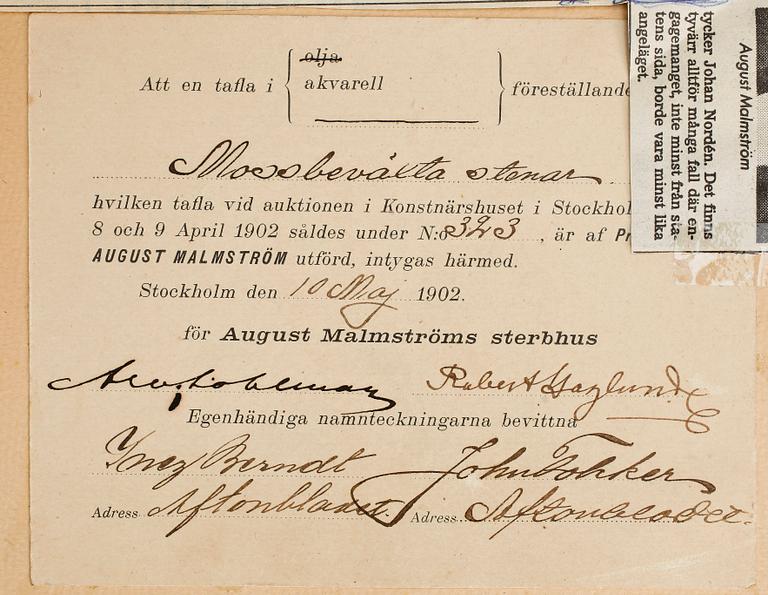 olja
Att en tafla i akvarell föreställande
Mossbeväxta stenar
hvilken tafla vid auktionen i Konstnärshuset i Stockhol
8 och 9 April 1902 såldes under N:o 323, är af Pr
AUGUST MALMSTRÖM utförd, intygas härmed.
Stockholm den 10 Maj 1902.
för August Malmströms sterbhus
Robert Haglund
Egenhändiga namnteckningarna bevittna
Inez Berndt John
Adress Aftonbladet. Adress Aftonbladet.
August Malmström
tycker Johan Nordén. Det finns
tyvärr alltför många fall där en-
gagemanget, inte minst från sta-
tens sida, borde vara minst lika
angeläget.